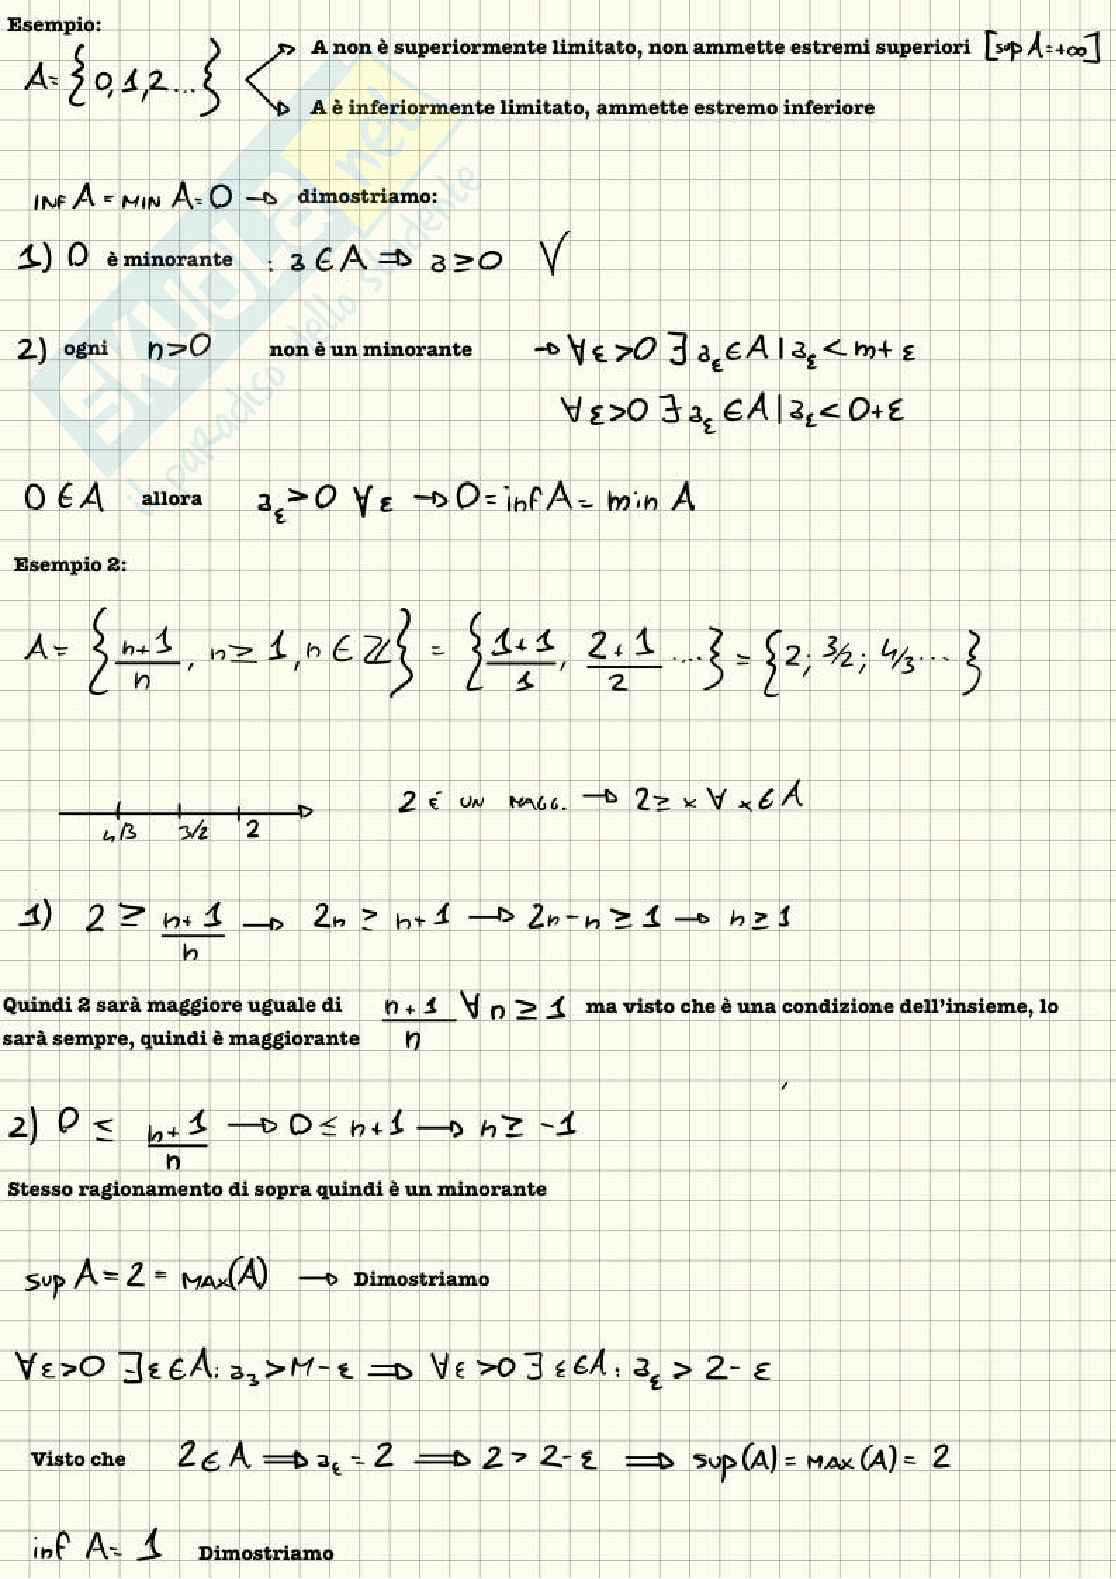 Esempio:
A = {0, 1, 2 ...}
A non è superiormente limitato, non ammette estremi superiori [sup A = +∞]
A è inferiormente limitato, ammette estremo inferiore
INF A = MIN A = 0 → dimostriamo:
1) 0 è minorante : a ∈ A ⇒ a ≥ 0 V
2) ogni n > 0 non è un minorante → ∀ ε > 0 ∃ aε ∈ A | aε < m + ε
∀ ε > 0 ∃ aε ∈ A | aε < 0 + ε
0 ∈ A allora aε > 0 ∀ ε → 0 = inf A = min A
Esempio 2:
A = { (n+1)/n , n ≥ 1, n ∈ ℤ } = { (1+1)/1 , (2+1)/2 .... } = { 2; 3/2; 4/3 ... }
4/3 3/2 2
2 É UN MAGG. → 2 ≥ x ∀ x ∈ A
1) 2 ≥ (n+1)/n → 2n ≥ n+1 → 2n - n ≥ 1 → n ≥ 1
Quindi 2 sarà maggiore uguale di (n+1)/n ∀ n ≥ 1 ma visto che è una condizione dell'insieme, lo
sarà sempre, quindi è maggiorante
2) 0 ≤ (n+1)/n → 0 ≤ n+1 → n ≥ -1
Stesso ragionamento di sopra quindi è un minorante
sup A = 2 = MAX(A) → Dimostriamo
∀ ε > 0 ∃ ε ∈ A : a3 > M - ε ⇒ ∀ ε > 0 ∃ ε ∈ A : aε > 2 - ε
Visto che 2 ∈ A ⇒ aε = 2 ⇒ 2 > 2 - ε ⇒ sup(A) = MAX(A) = 2
inf A = 1 Dimostriamo
SKUOLA.net
il paradiso dello studente